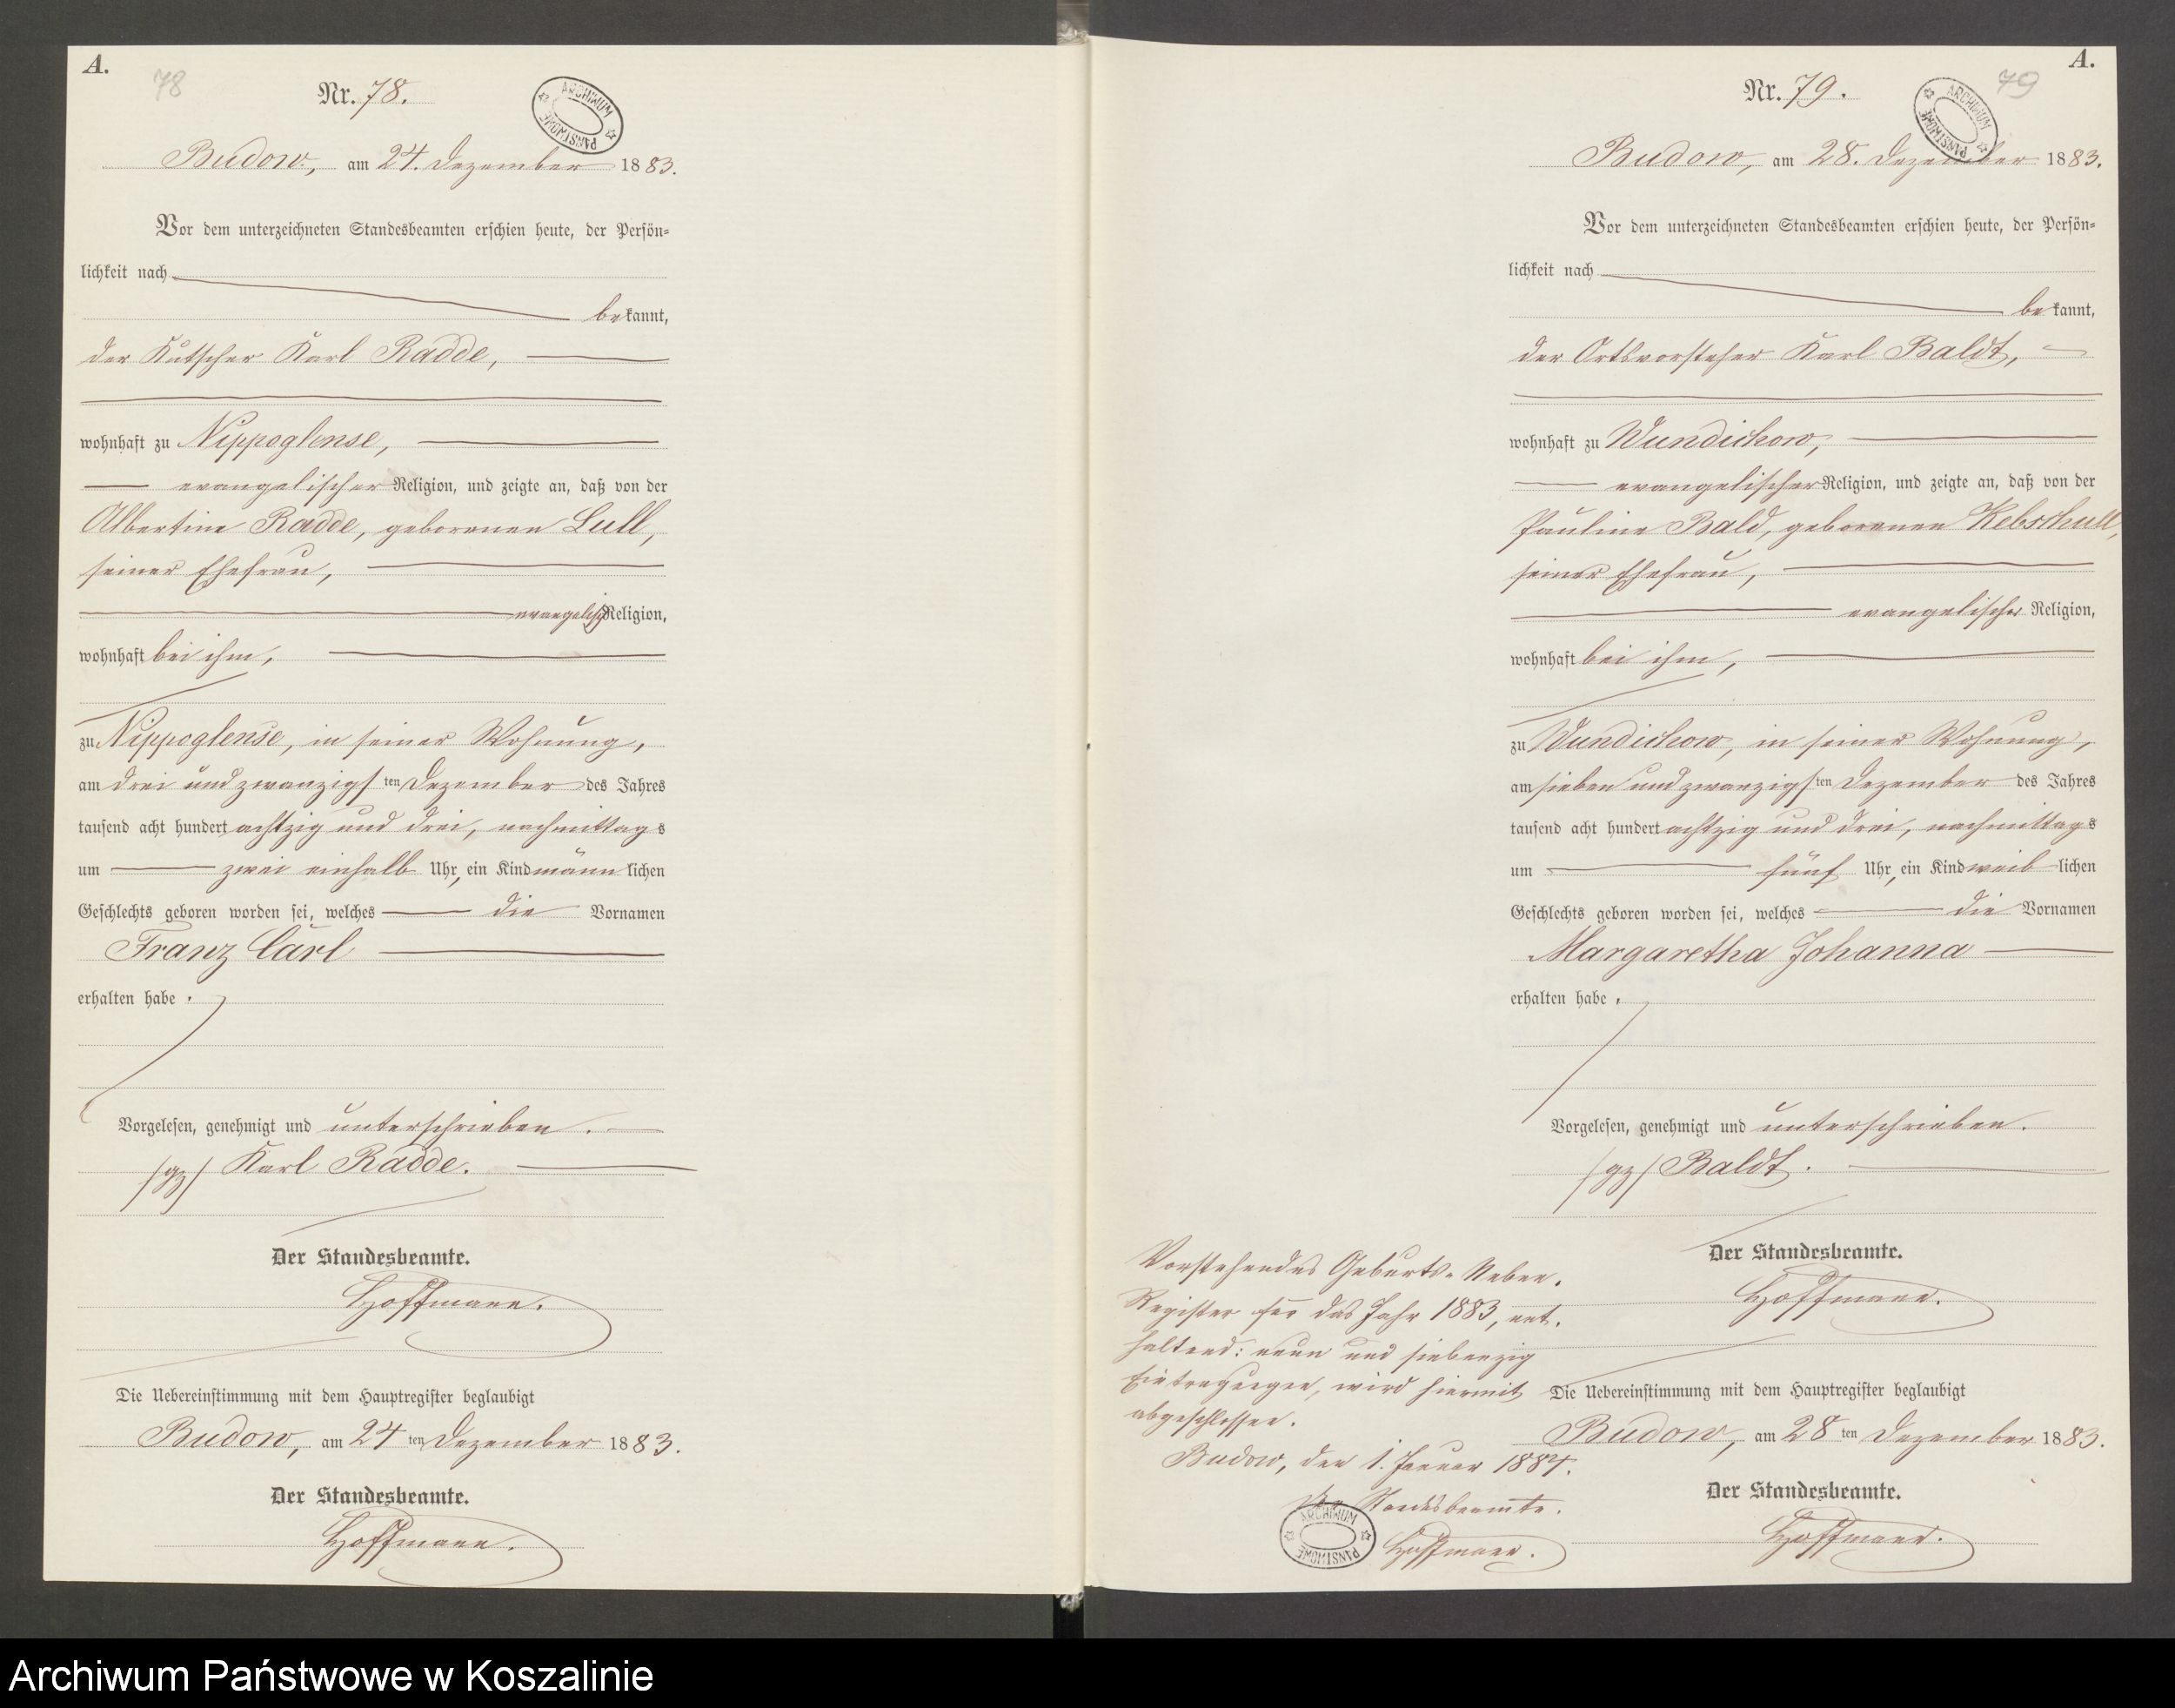 A.
78
Nr. 78.
ARCHIWUM PAŃSTWOWE
Budow, am 24. Dezember 1883.
Vor dem unterzeichneten Standesbeamten erschien heute, der Persön=
lichkeit nach
bekannt,
der Kutscher Karl Radde,
wohnhaft zu Nippoglense,
evangelischer Religion, und zeigte an, daß von der
Albertine Radde, geborenen Lull,
seiner Ehefrau,
evangelisch Religion,
wohnhaft bei ihm,
zu Nippoglense, in seiner Wohnung,
am drei und zwanzigsten Dezember des Jahres
tausend acht hundert achtzig und drei, nachmittags
um zwei einhalb Uhr, ein Kind männlichen
Geschlechts geboren worden sei, welches die Vornamen
Franz Carl
erhalten habe.
Vorgelesen, genehmigt und unterschrieben.
/gz/ Karl Radde.
Der Standesbeamte.
Hoffmann.
Die Uebereinstimmung mit dem Hauptregister beglaubigt
Budow, am 24ten Dezember 1883.
Der Standesbeamte.
Hoffmann.
A.
79
Nr. 79.
ARCHIWUM PAŃSTWOWE
Budow, am 28. Dezember 1883.
Vor dem unterzeichneten Standesbeamten erschien heute, der Persön=
lichkeit nach
bekannt,
der Ortsvorsteher Karl Baldt,
wohnhaft zu Wundichow,
evangelischer Religion, und zeigte an, daß von der
Pauline Bald, geborenen Kebschull,
seiner Ehefrau,
evangelischer Religion,
wohnhaft bei ihm,
zu Wundichow, in seiner Wohnung,
am sieben und zwanzigsten Dezember des Jahres
tausend acht hundert achtzig und drei, nachmittags
um fünf Uhr, ein Kind weiblichen
Geschlechts geboren worden sei, welches die Vornamen
Margaretha Johanna
erhalten habe.
Vorgelesen, genehmigt und unterschrieben.
/gz/ Baldt.
Der Standesbeamte.
Hoffmann.
Die Uebereinstimmung mit dem Hauptregister beglaubigt
Budow, am 28ten Dezember 1883.
Der Standesbeamte.
Hoffmann.
Vorstehendes Geburts-Neben-
Register für das Jahr 1883, ent-
haltend: neun und siebenzig
Eintragungen, wird hiermit
abgeschlossen.
Budow, den 1. Januar 1884.
Der Standesbeamte.
Hoffmann.
ARCHIWUM PAŃSTWOWE
Archiwum Państwowe w Koszalinie